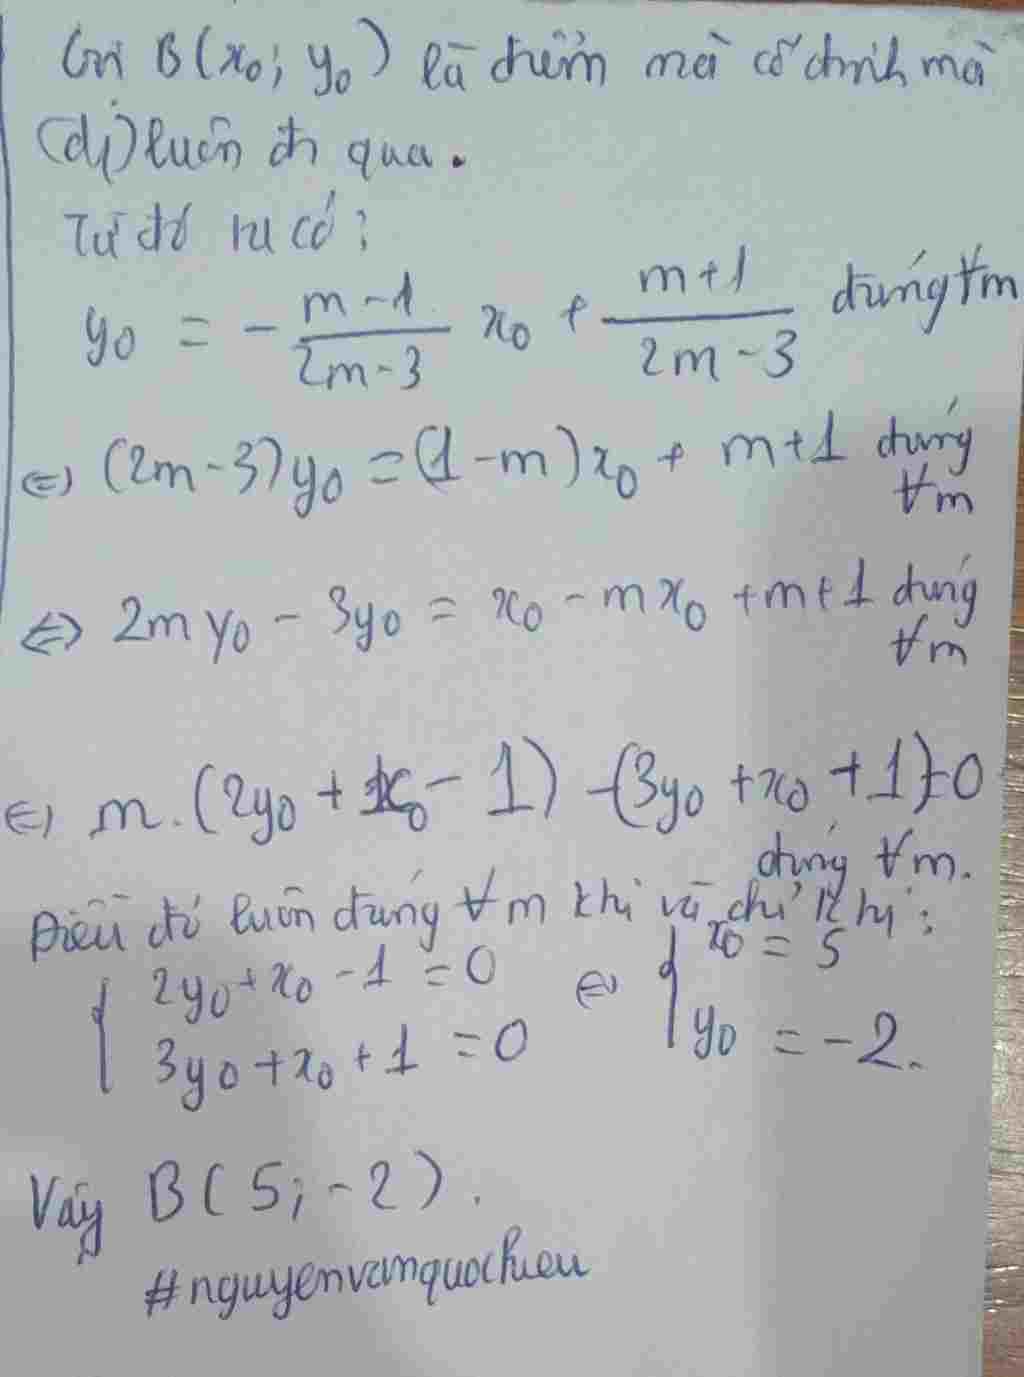 Gọi B(x₀; y₀) là điểm mà cố định mà
(d₁) luôn đi qua.
Từ đó ta có:
y₀ = - \frac{m-1}{2m-3} x₀ + \frac{m+1}{2m-3} đúng ∀m
⇔ (2m-3)y₀ = (1-m)x₀ + m+1 đúng ∀m
⇔ 2my₀ - 3y₀ = x₀ - mx₀ + m+1 đúng ∀m
⇔ m.(2y₀ + x₀ - 1) - (3y₀ + x₀ + 1) = 0
đúng ∀m.
Điều đó luôn đúng ∀m khi và chỉ khi:
{ 2y₀ + x₀ - 1 = 0 ⇔ { x₀ = 5
3y₀ + x₀ + 1 = 0 y₀ = -2.
Vậy B(5; -2).
#nguyenvanquochieu